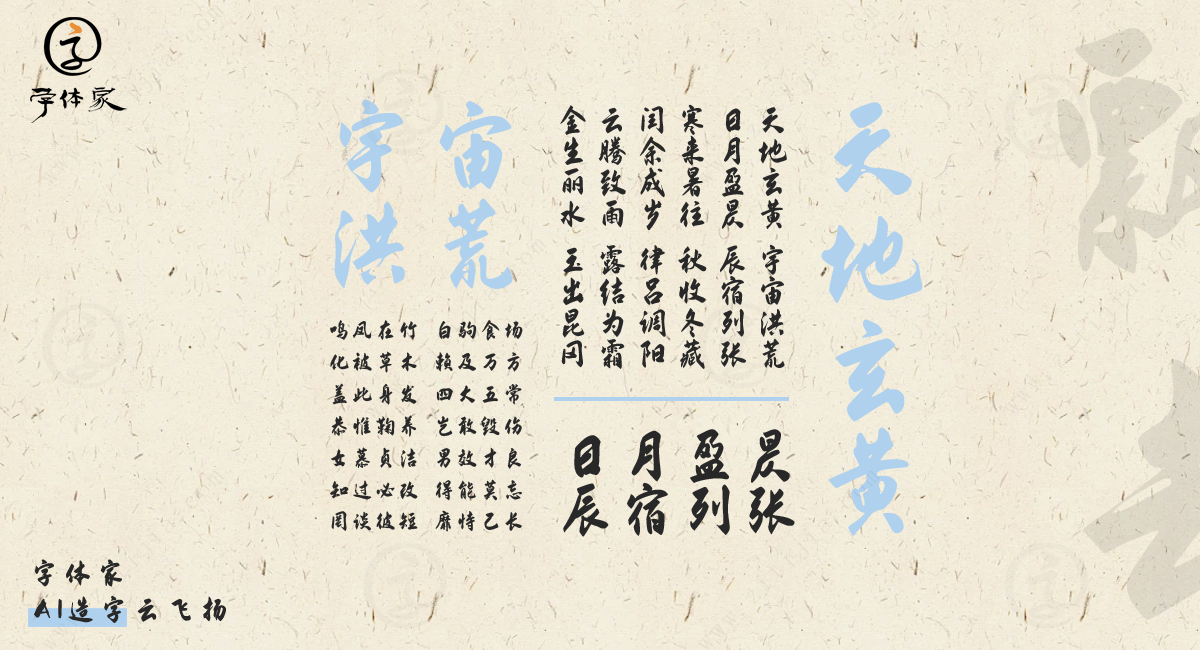 字
字体家
天地玄黄
天地玄黄 宇宙洪荒
日月盈昃 辰宿列张
寒来暑往 秋收冬藏
闰余成岁 律吕调阳
云腾致雨 露结为霜
金生丽水 玉出昆冈
日月盈昃
辰宿列张
宇宙
洪荒
鸣凤在竹 白驹食场
化被草木 赖及万方
盖此身发 四大五常
恭惟鞠养 岂敢毁伤
女慕贞洁 男效才良
知过必改 得能莫忘
罔谈彼短 靡恃己长
字体家
AI造字云飞扬